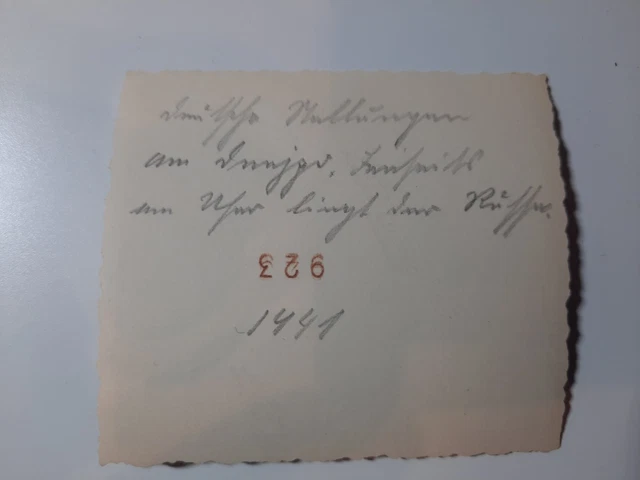 deutsche Stellungen
am Dnejpr. Jenseits
am Ufer liegt der Russe.
923
1941